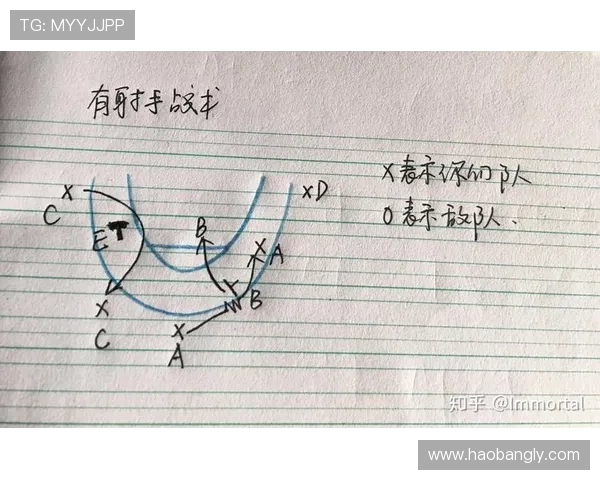 TG: MYYJJPP
有射手战术
X表示你们队
O表示敌队.
X
C
E
B
X
A
XD
X
C
B
X
A
知乎 @Immortal
www.haobangly.com